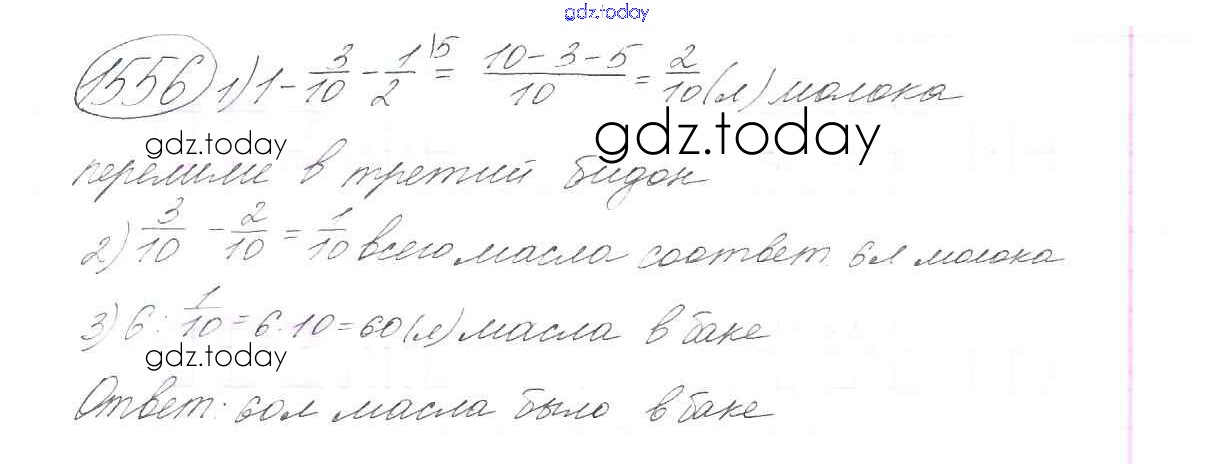 gdz.today
1556 1) 1 - 3/10 - 1/2 \5 = (10-3-5)/10 = 2/10 (л) молока
gdz.today gdz.today
перелили в третий бидон
2) 3/10 - 2/10 = 1/10 всего масла соответ. 6л молока
3) 6 : 1/10 = 6 · 10 = 60 (л) масла в баке
gdz.today gdz.today
Ответ: 60л масла было в баке